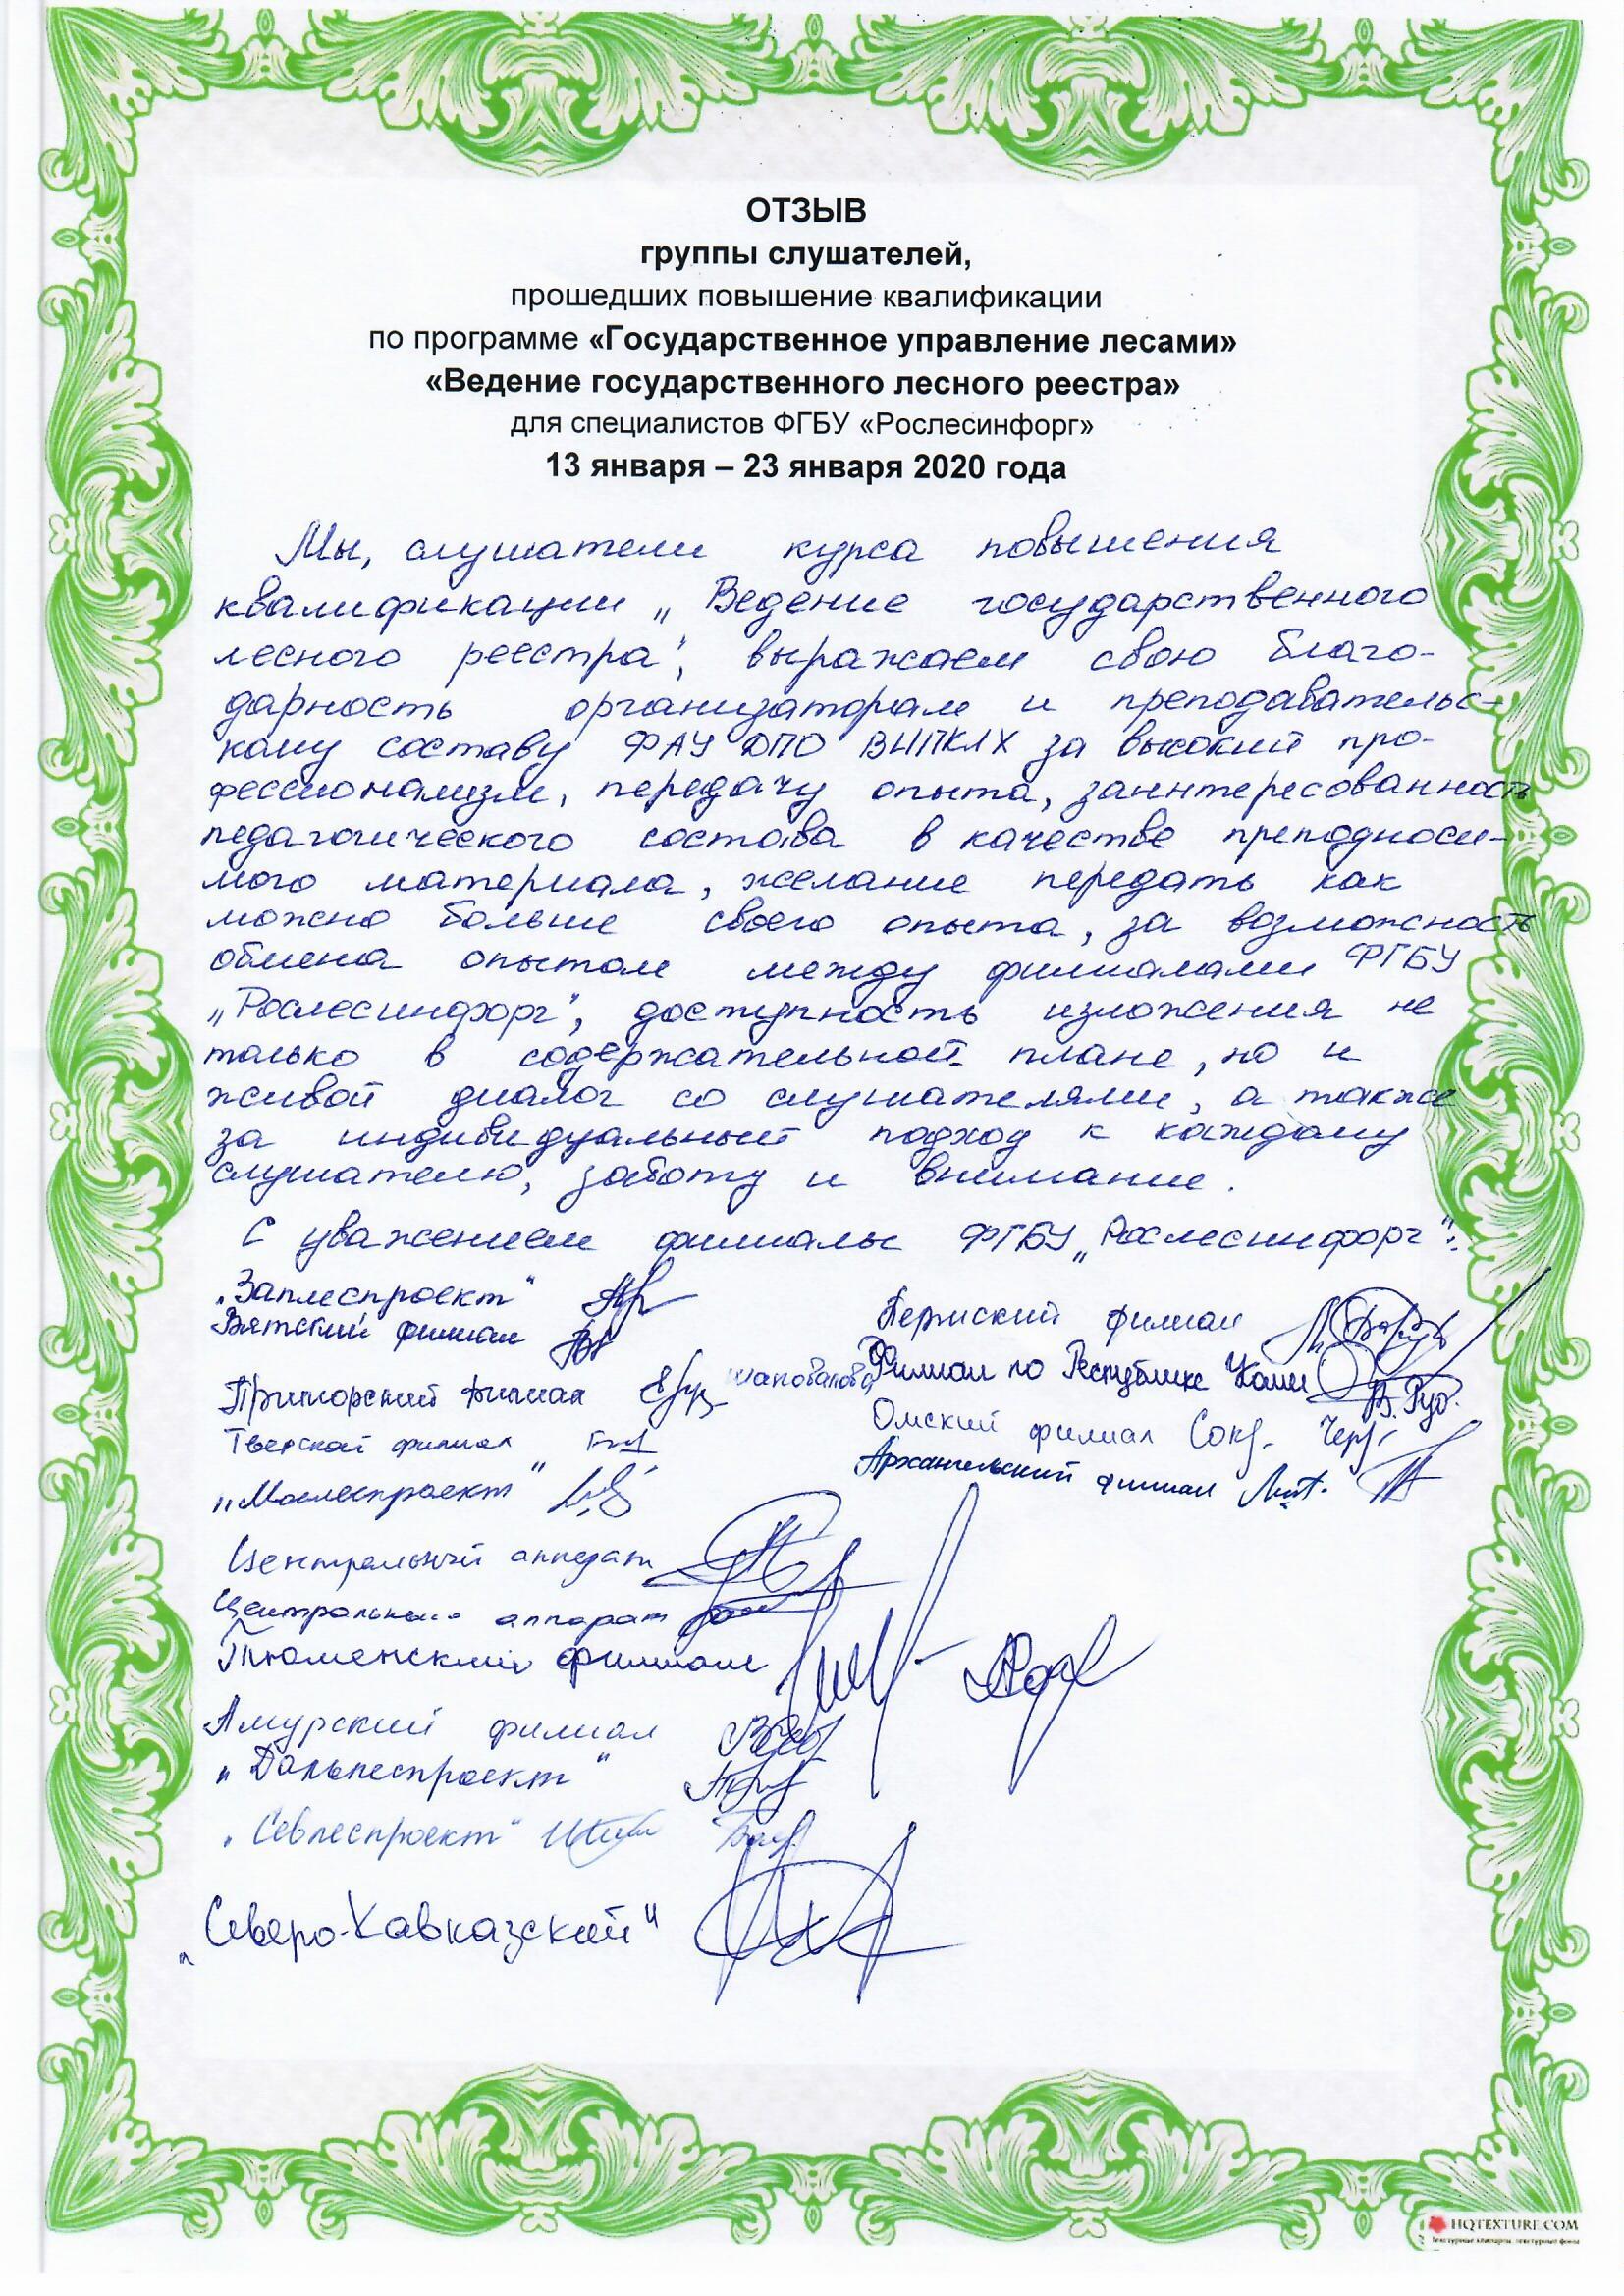 ОТЗЫВ
группы слушателей,
прошедших повышение квалификации
по программе «Государственное управление лесами»
«Ведение государственного лесного реестра»
для специалистов ФГБУ «Рослесинфорг»
13 января – 23 января 2020 года
Мы, слушатели курса повышения
квалификации „Ведение государственного
лесного реестра", выражаем свою благо-
дарность организаторам и преподавательс-
кому составу ФАУ ДПО ВИПКЛХ за высокий про-
фессионализм, передачу опыта, заинтересованность
педагогического состава в качестве преподноси-
мого материала, желание передать как
можно больше своего опыта, за возможность
обмена опытом между филиалами ФГБУ
„Рослесинфорг", доступность изложения не
только в содержательной плане, но и
живой диалог со слушателями, а также
за индивидуальный подход к каждому
слушателю, заботу и внимание.
С уважением филиалы ФГБУ „Рослесинфорг":
„Заплеспроект"
Вятский филиал
Приморский филиал Шаповалова
Тверской филиал
„Мослеспроект"
Пермский филиал
Филиал по Республике Коми
Омский филиал
Архангельский филиал
Центральный аппарат
Центральный аппарат
Тюменский филиал
Амурский филиал
„Дальлеспроект"
„Севлеспроект"
„Северо-Кавказский"
HQTEXTURE.COM